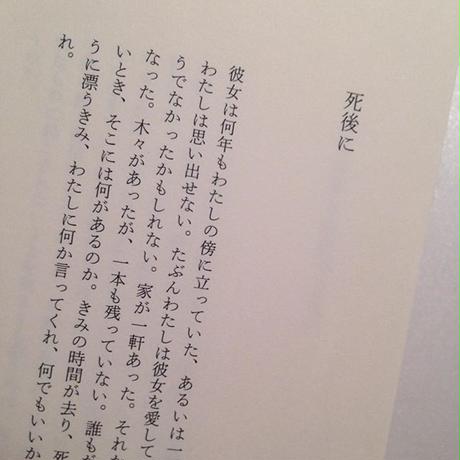 死後に
彼女は何年もわたしの傍に立っていた、あるいは一
わたしは思い出せない。たぶんわたしは彼女を愛して
うでなかったかもしれない。家が一軒あった。それ
なった。木々があったが、一本も残っていない。誰も
いとき、そこには何があるのか。きみの時間が去り、死
うに漂うきみ、わたしに何か言ってくれ、何でもいいか
れ。